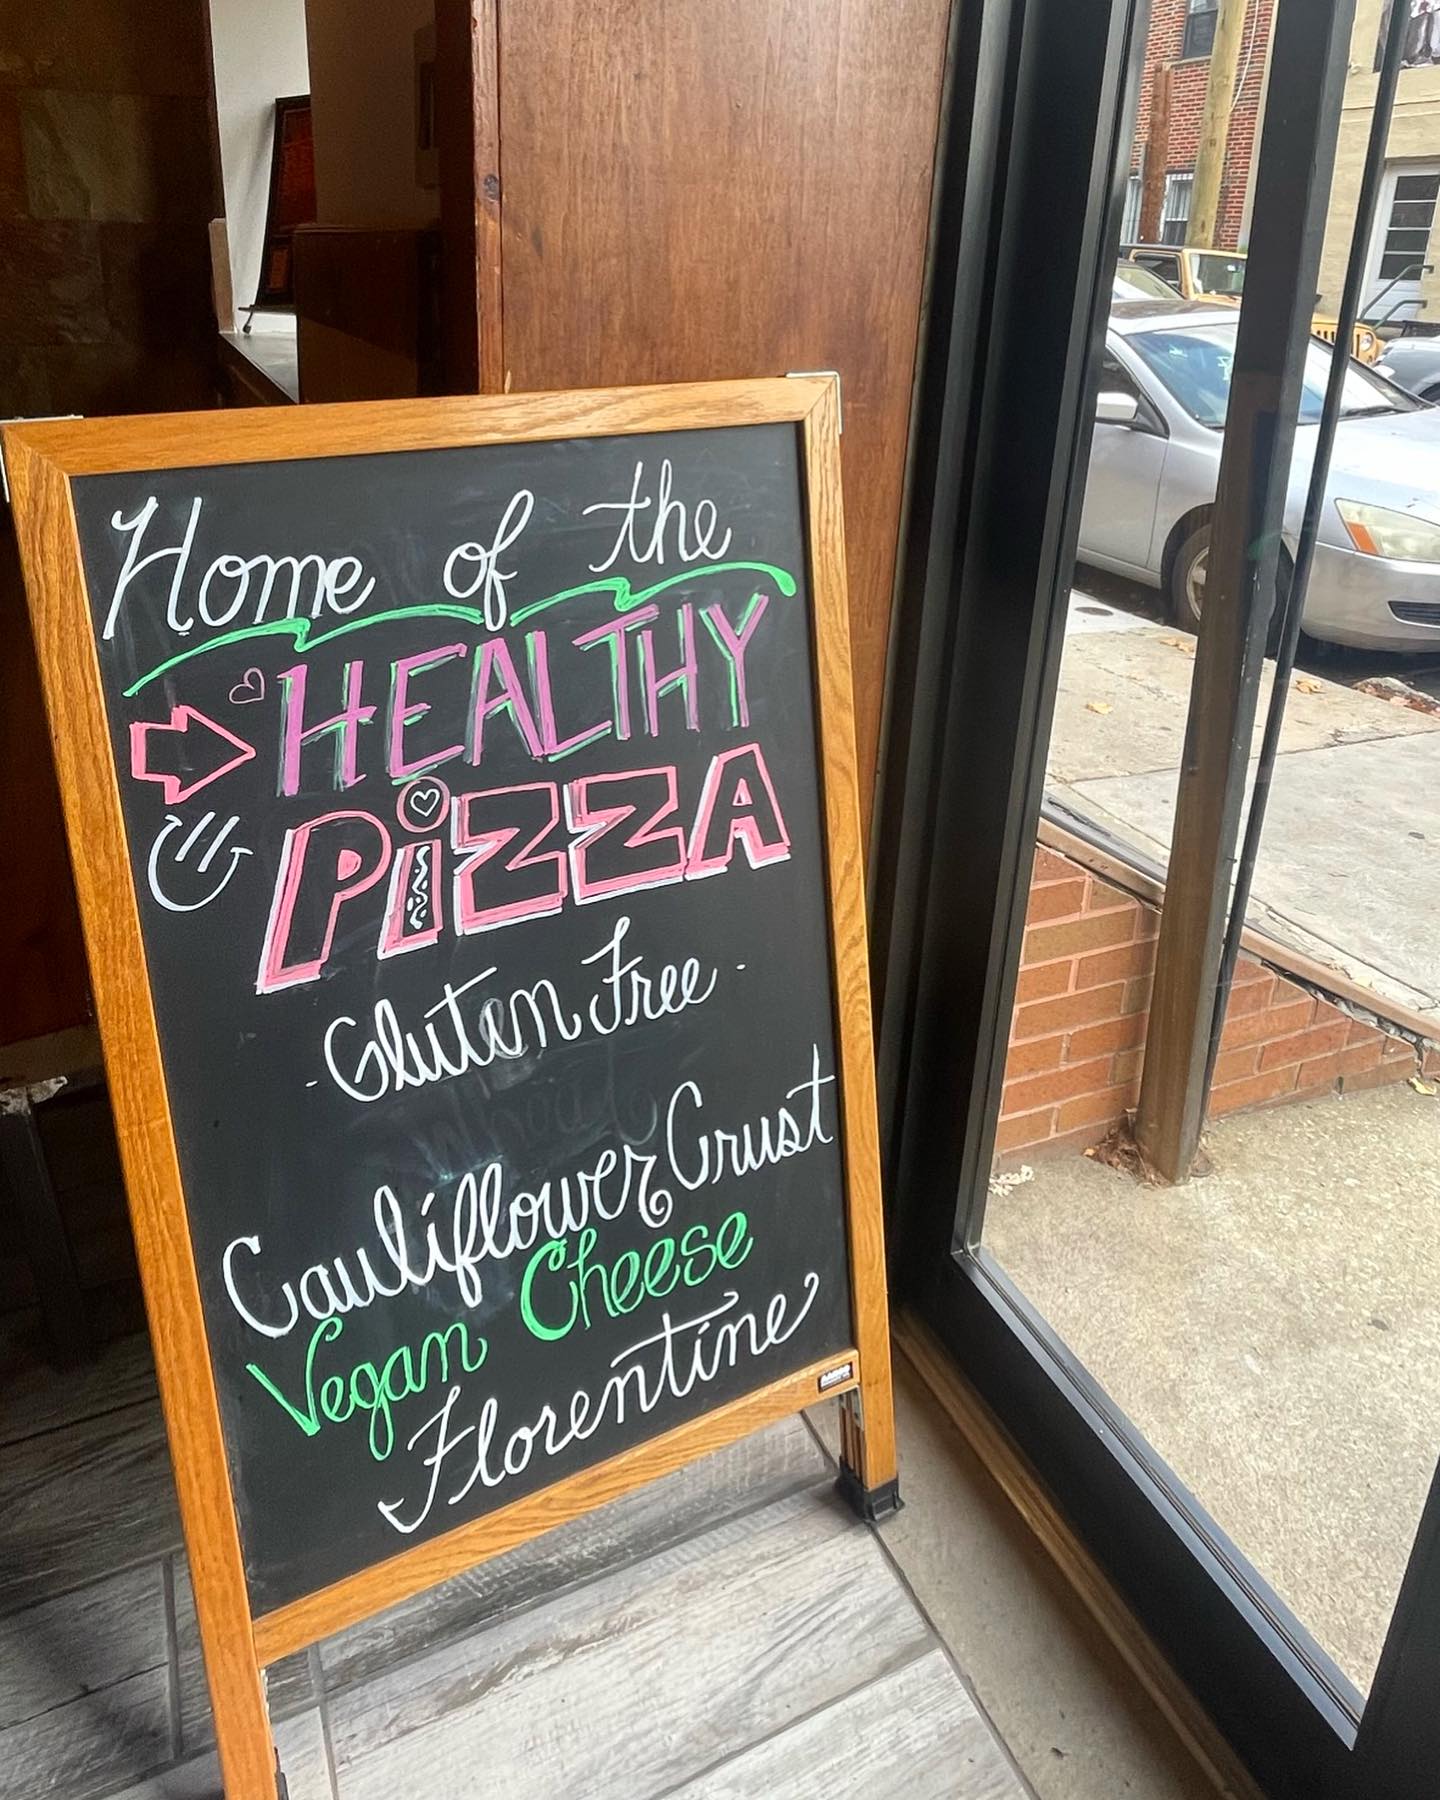 Home of the
HEALTHY
PiZZA
- Gluten Free -
Cauliflower Crust
Vegan Cheese
Florentine